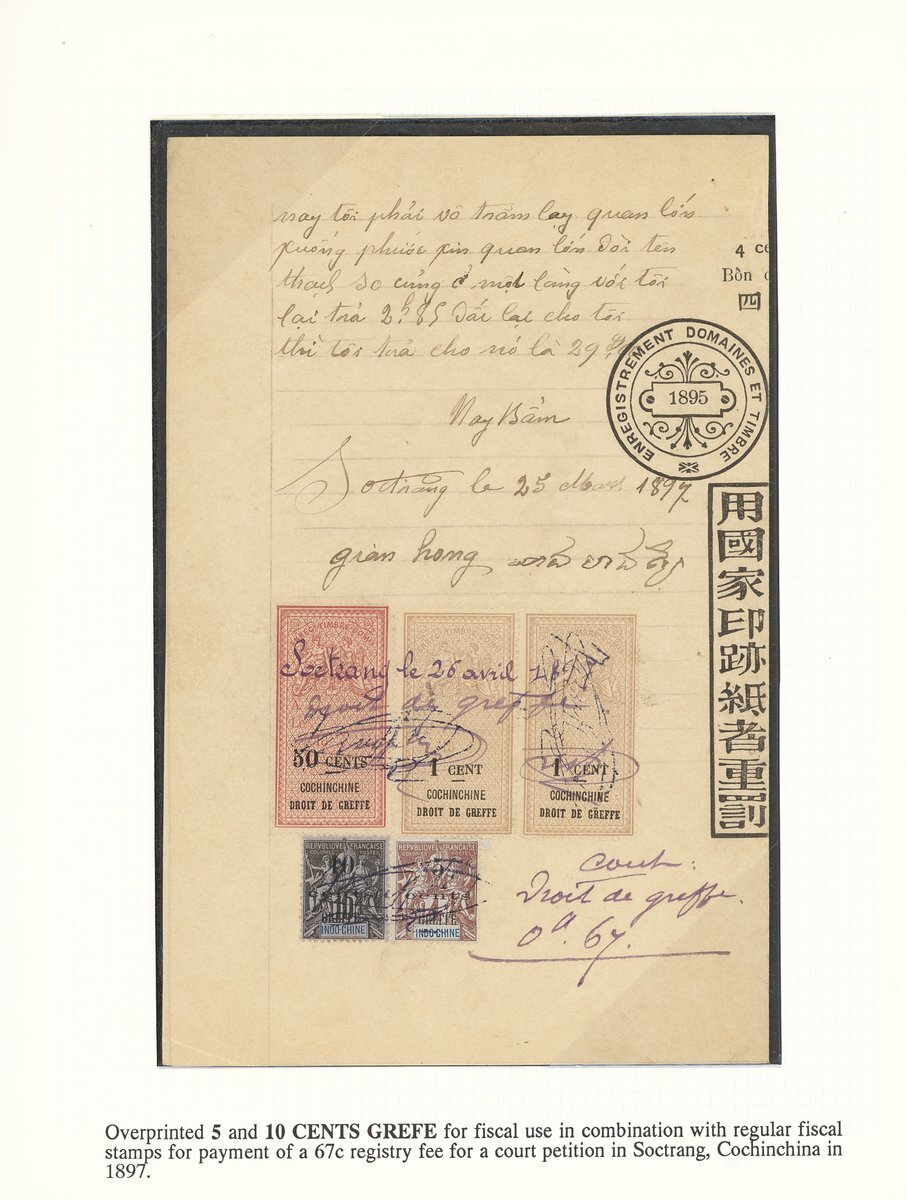 nay tôi phải vô trăm lạy quan lớn
xuống phước xin quan lớn đòi tên
thạch so cũng ở một làng với tôi
lại trả
lại cho tôi
thì tôi trả cho nó là 29
4 ce
Bôn
四
ENREGISTREMENT DOMAINES ET TIMBRE
1895
Nay Bẩm
Soctrang le 25 Mars 1897
gian hong
用國家印跡紙者重罰
Soctrang le 26 avril
Droit de greffe
50 CENTS
COCHINCHINE
DROIT DE GREFFE
1 CENT
COCHINCHINE
DROIT DE GREFFE
1 CENT
COCHINCHINE
DROIT DE GREFFE
REPVBLIQVE FRANÇAISE
COLONIES POSTES
GREFFE
INDO-CHINE
REPVBLIQVE FRANÇAISE
COLONIES POSTES
5
GREFFE
INDO-CHINE
cout:
Droit de greffe.
0 67.
Overprinted 5 and 10 CENTS GREFE for fiscal use in combination with regular fiscal
stamps for payment of a 67c registry fee for a court petition in Soctrang, Cochinchina in
1897.